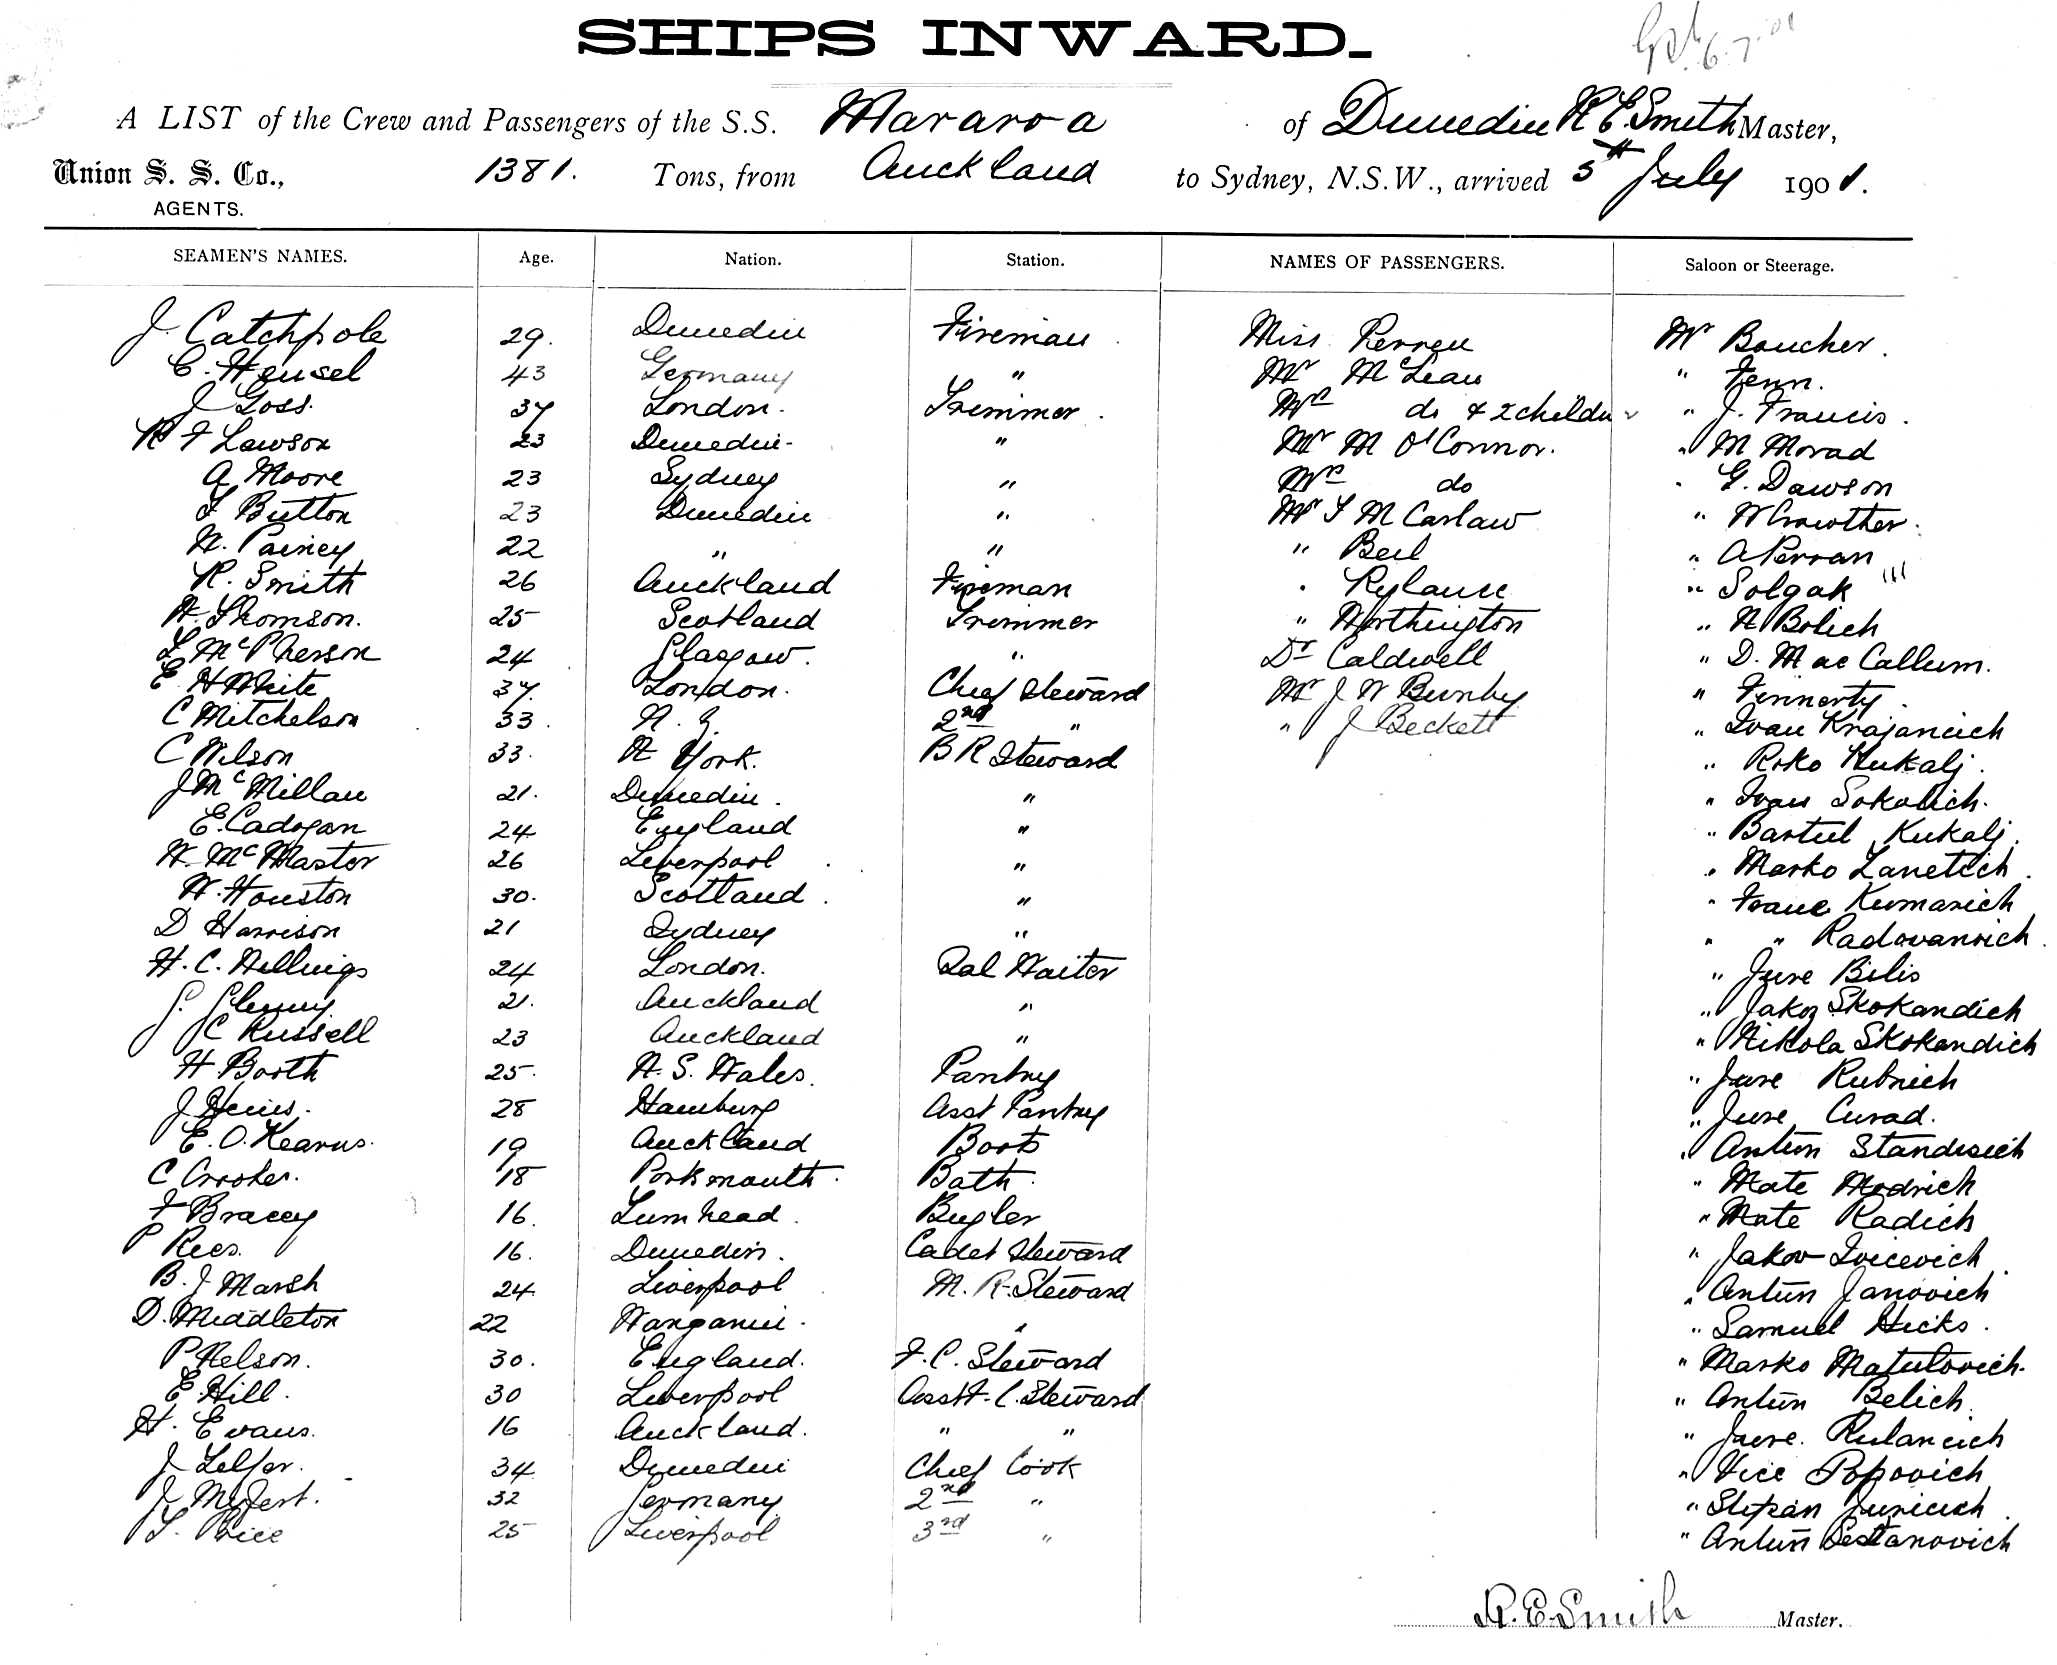 SHIPS INWARD.
6.7.01
A LIST of the Crew and Passengers of the S.S. Mararoa of Dunedin R E Smith Master,
Union S. S. Co., 1381. Tons, from Auckland to Sydney, N.S.W., arrived 5th July 1901.
AGENTS.
SEAMEN'S NAMES. Age. Nation. Station. NAMES OF PASSENGERS. Saloon or Steerage.
J. Catchpole 29. Dunedin Fireman Miss Perren Mr Boucher.
C. Hensel 43 Germany " Mr McLean " Fenn.
J Goss. 37 London. Trimmer. Mrs do & 2 children " J. Francis.
R F Lawson 23 Dunedin " Mr M O'Connor. " M Morad
A Moore 23 Sydney " Mrs do " G. Dawson
F Button 23 Dunedin " Mr T M Carlaw " W Crowther.
W. Pairey 22 " " " Beil " A Perran
R. Smith 26 Auckland Fireman " Rylance " Solgak
W. Thomson. 25 Scotland Trimmer " Worthington " N Bolich
L McPherson 24 Glasgow. " Dr Caldwell " D. MacCallum.
E H White 37. London. Chief Steward Mr J W Burnby " Finnerty.
C Mitchelson 33. N. Z. 2nd " " J Beckett " Ivan Krajancich
C Wilson 33. N York. B R Steward " Roko Kukalj.
J McMillan 21. Dunedin. " " Ivan Sokolich.
E. Cadogan 24 England " " Bartul Kukalj.
W. McMaster 26 Liverpool " " Marko Lanetich.
W. Houston 30. Scotland. " " Frane Kumarich
D Harrison 21 Sydney " " " Radovanvich.
H. C. Hellings 24 London. Sal Waiter " Jure Bilis
G. Glenny 21. Auckland " " Jakov Skokandich
J C Russell 23 Auckland " " Nikola Skokandich
H Booth 25. N. S. Wales. Pantry " Jure Rubrich
J Heins. 28 Hamburg Asst Pantry " Jure Curad.
E. O. Kearns. 19 Auckland Boots " Antun Standisich
C Crooker. 18 Portsmouth. Bath. " Mate Modrich
F Bracey 16. Lumhead. Bugler " Mate Radich
P Rees. 16. Dunedin. Cadet Steward " Jakov Ivicevich
B. J Marsh 24 Liverpool M. R. Steward " Antun Janovich
D. Middleton 22 Wanganui. " " Samuel Hicks.
P Nelson. 30. England. F. C. Steward " Marko Matutovich.
E Hill. 30 Liverpool Asst F. C. Steward " Antun Belich.
H. Evans. 16 Auckland. " " " Jure. Rulancich
J Telfer. 34 Dunedin Chief Cook " Vice Popovich
J. Meffert. 32 Germany 2nd " " Stipan Juricich
T. Price 25 Liverpool 3rd " " Antun Sestanovich
R. E. Smith Master.